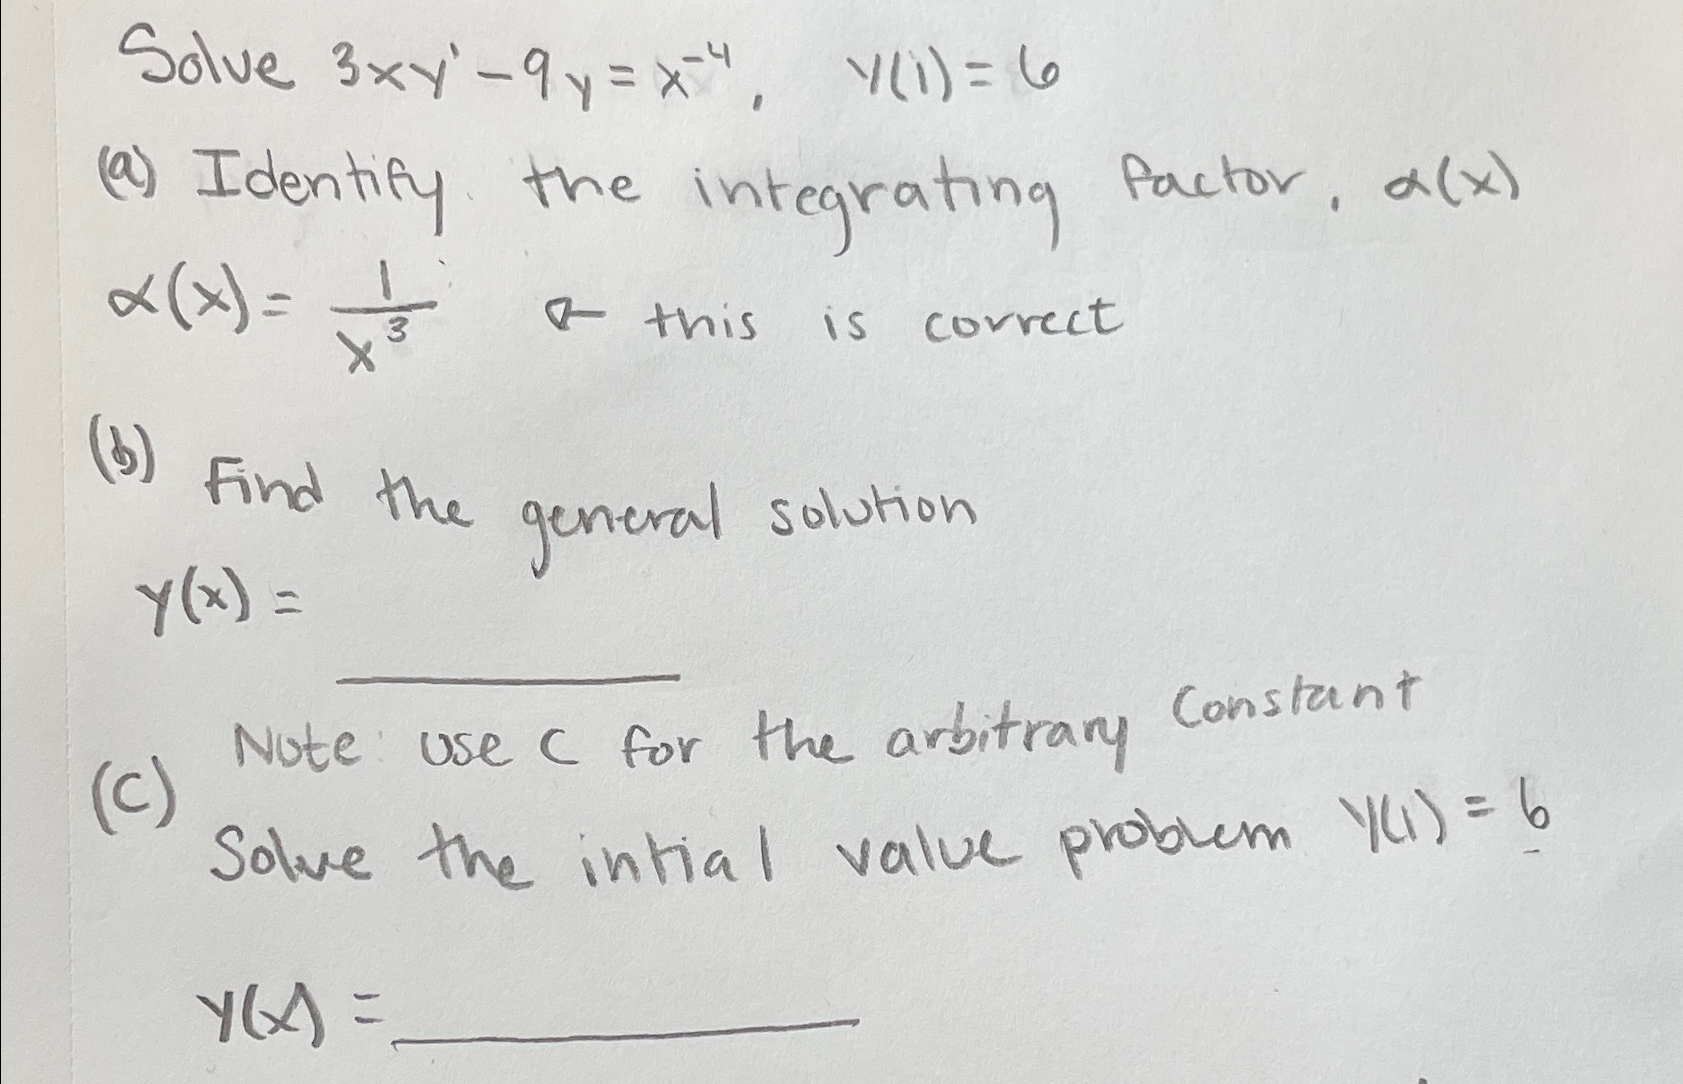 Solve 3xy' - 9y = x⁻⁴, y(1) = 6
(a) Identify the integrating factor, α(x)
α(x) = 1/x³ ← this is correct
(b) Find the general solution
y(x) = ________
Note: use C for the arbitrary constant
(C) Solve the intial value problem y(1) = 6
y(x) = ________